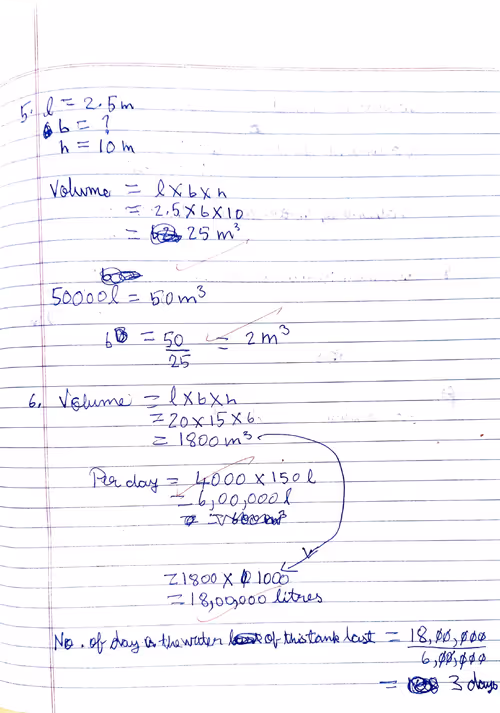 5. l = 2.5 m
b = ?
h = 10 m
Volume = l x b x h
= 2.5 x b x 10
= 25 m³
50000l = 50 m³
b = 50/25 = 2 m³
6. Volume = l x b x h
= 20 x 15 x 6
= 1800 m³
Per day = 4000 x 150 l
= 6,00,000 l
= 1800 x 1000
= 18,00,000 litres
No. of day is the water of this tank last = 18,00,000/6,00,000
= 3 days